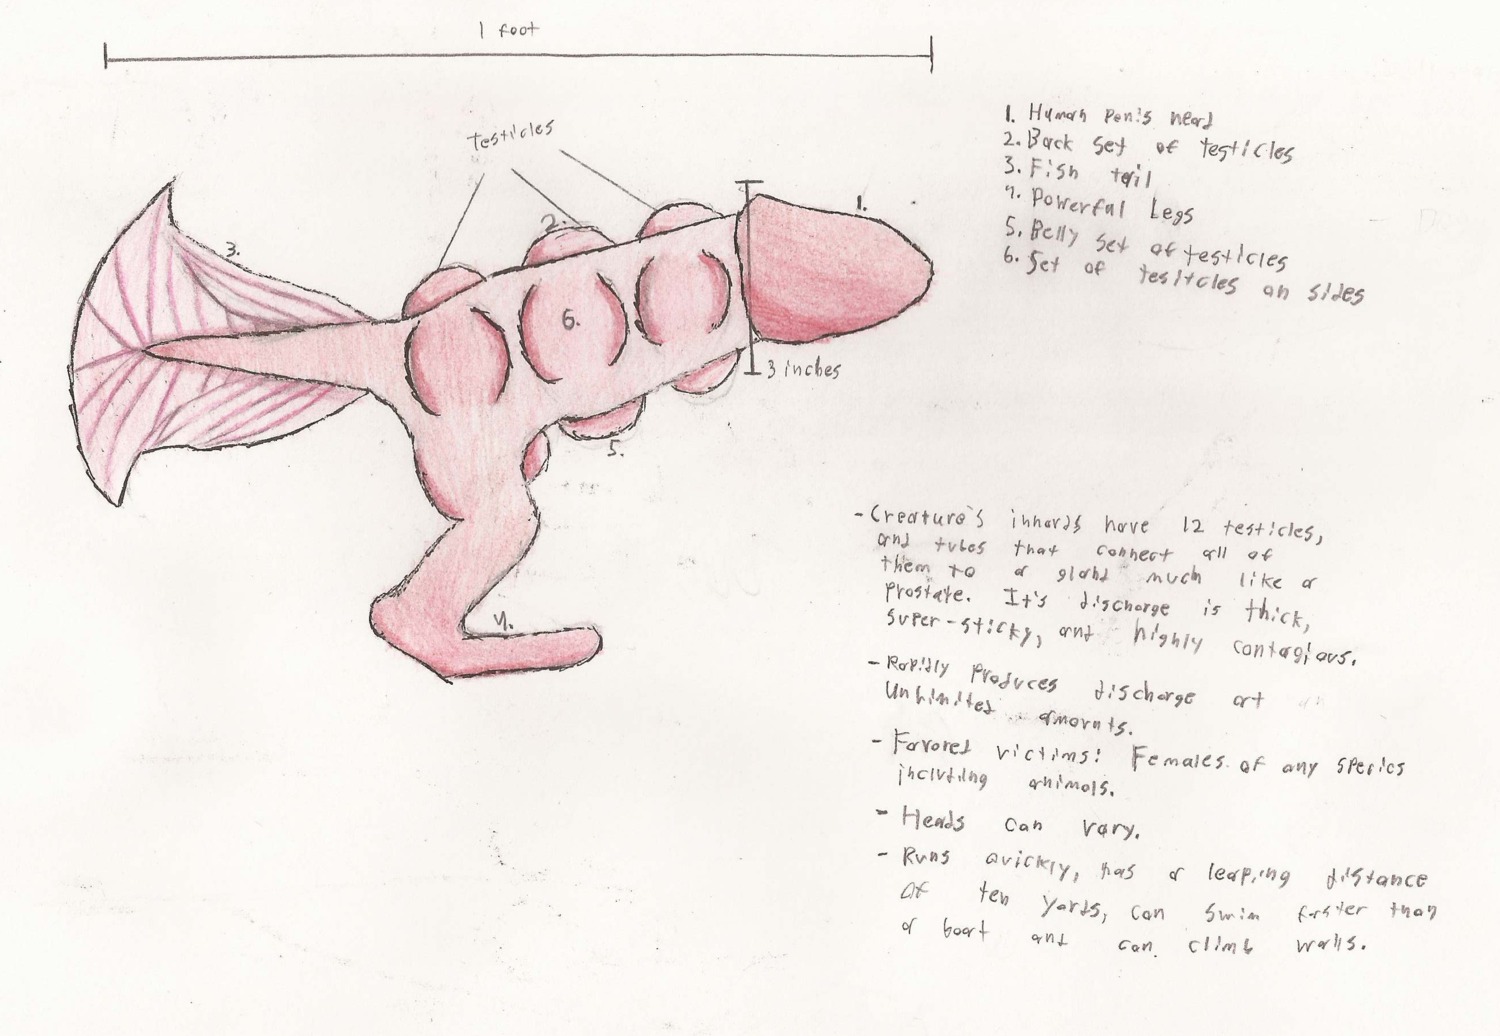 1 foot
testicles
1.
2.
3.
6.
3 inches
5.
4.
1. Human Penis head
2. Back set of testicles
3. Fish tail
4. Powerful Legs
5. Belly set of testicles
6. Set of tesitcles on sides
- Creature's inhards have 12 testicles,
and tubes that connect all of
them to a gland much like a
prostate. It's discharge is thick,
super-sticky, and highly contagious.
- Rapidly Produces discharge at
Unlimited amounts.
- Favored victims: Females of any species
including animals.
- Heads can vary.
- Runs quickly, has a leaping distance
of ten yards, can swim faster than
a boat and can climb walls.